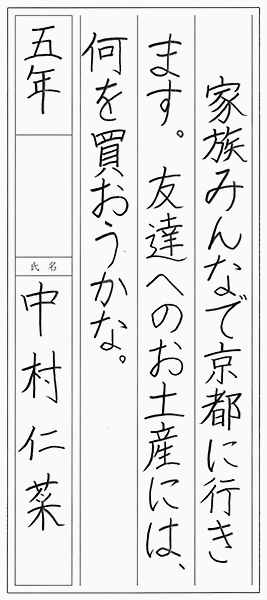 家族みんなで京都に行き
ます。友達へのお土産には、
何を買おうかな。
五年
氏名
中村仁菜